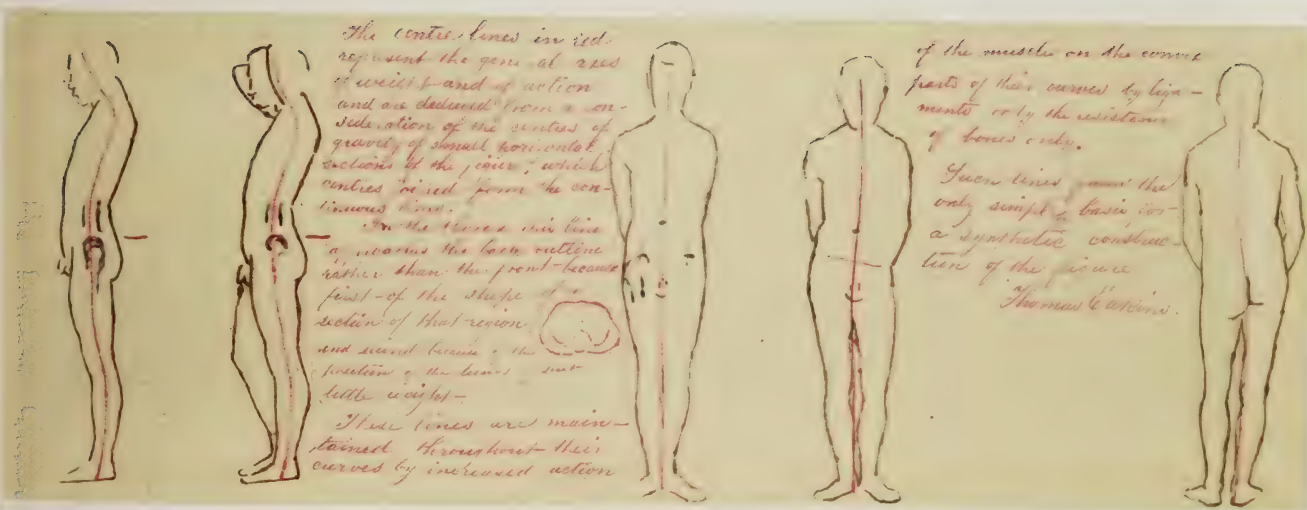 The centre lines in red
represent the general axes
of weight and of action
and are deduced from a con-
sideration of the centres of
gravity of small horizontal
sections of the figure, which
centres joined form the con-
tinuous lines.
In the thorax this line
nears the back outline
rather than the front because
first of the shape of a
section of that region
and second because the
position of the lungs
little weight –
These lines are main-
tained throughout their
curves by increased action
of the muscle on the convex
parts of their curves by liga-
ments or by the resistance
of bones only.
Such lines form the
only simple basis for
a synthetic construc-
tion of the figure
Thomas Eakins.